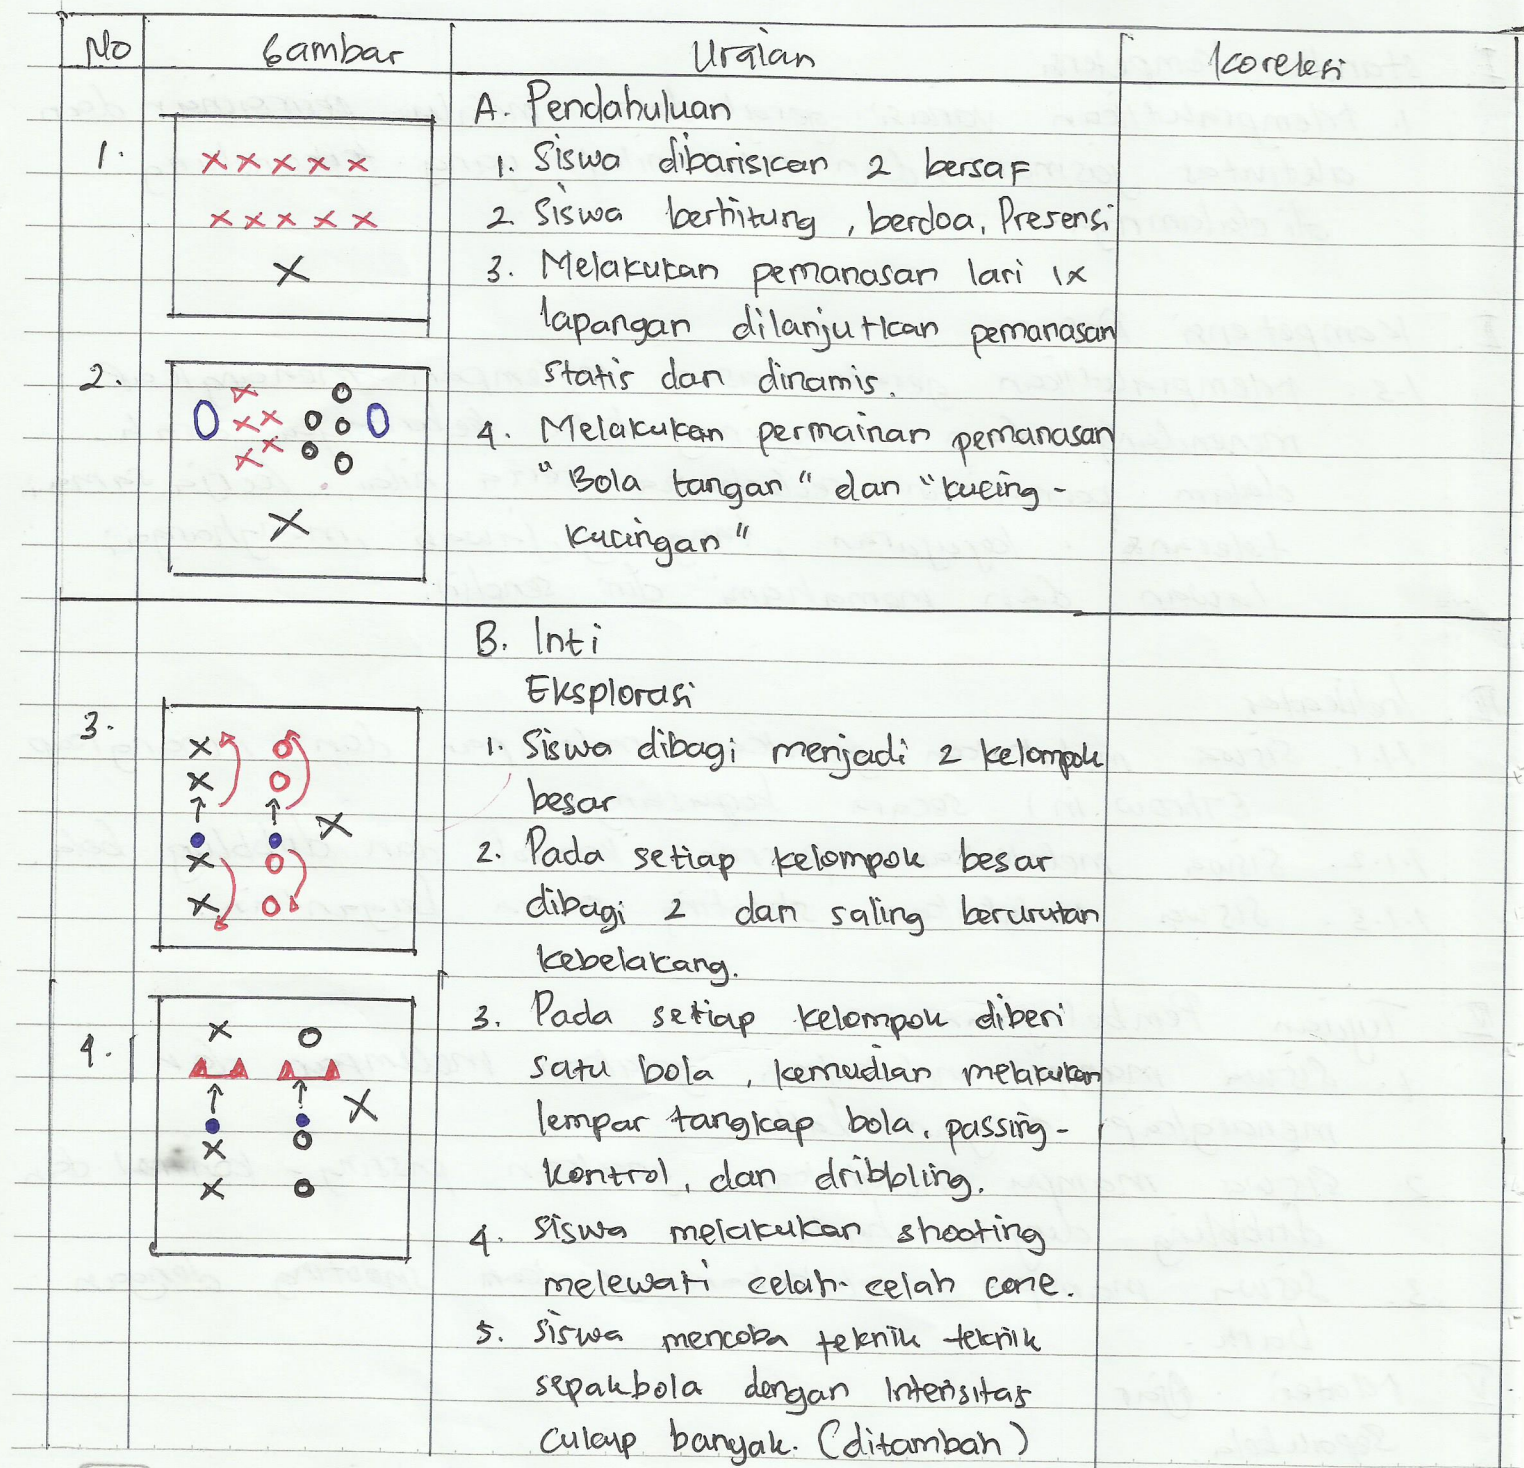 No Gambar Uraian Koreksi
A. Pendahuluan
1. 1. Siswa dibariskan 2 bersaf
2. Siswa berhitung, berdoa, Presensi
3. Melakukan pemanasan lari 1x
lapangan dilanjutkan pemanasan
2. statis dan dinamis.
4. Melakukan permainan pemanasan
"Bola tangan" dan "kucing-
kucingan"
B. Inti
Eksplorasi
3. 1. Siswa dibagi menjadi 2 kelompok
besar
2. Pada setiap kelompok besar
dibagi 2 dan saling berurutan
kebelakang.
3. Pada setiap kelompok diberi
4. satu bola, kemudian melakukan
lempar tangkap bola, passing-
kontrol, dan dribbling.
4. Siswa melakukan shooting
melewati celah-celah cone.
5. Siswa mencoba teknik teknik
sepakbola dengan Intensitas
cukup banyak. (ditambah)